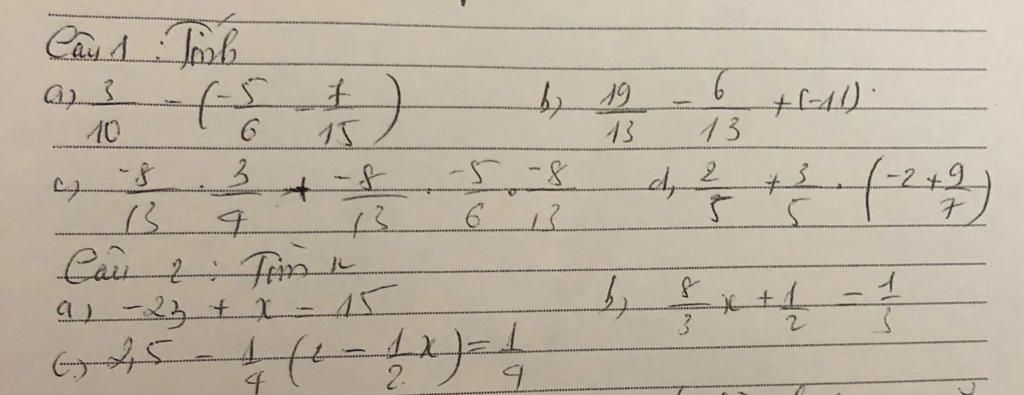 Câu 1 : Tính
a) 3/10 - (-5/6 - 7/15) b) 19/13 - 6/13 + (-11)
c) -8/13 . 3/4 + -8/13 . -5/6 . -8/13 d, 2/5 + 3/5 . (-2 + 9/7)
Câu 2 : Tìm x
a) -23 + x = 15 b, 8/3 x + 1/2 = 1/3
c.) 2,5 - 1/4 ( - 1/2 x) = 1/4